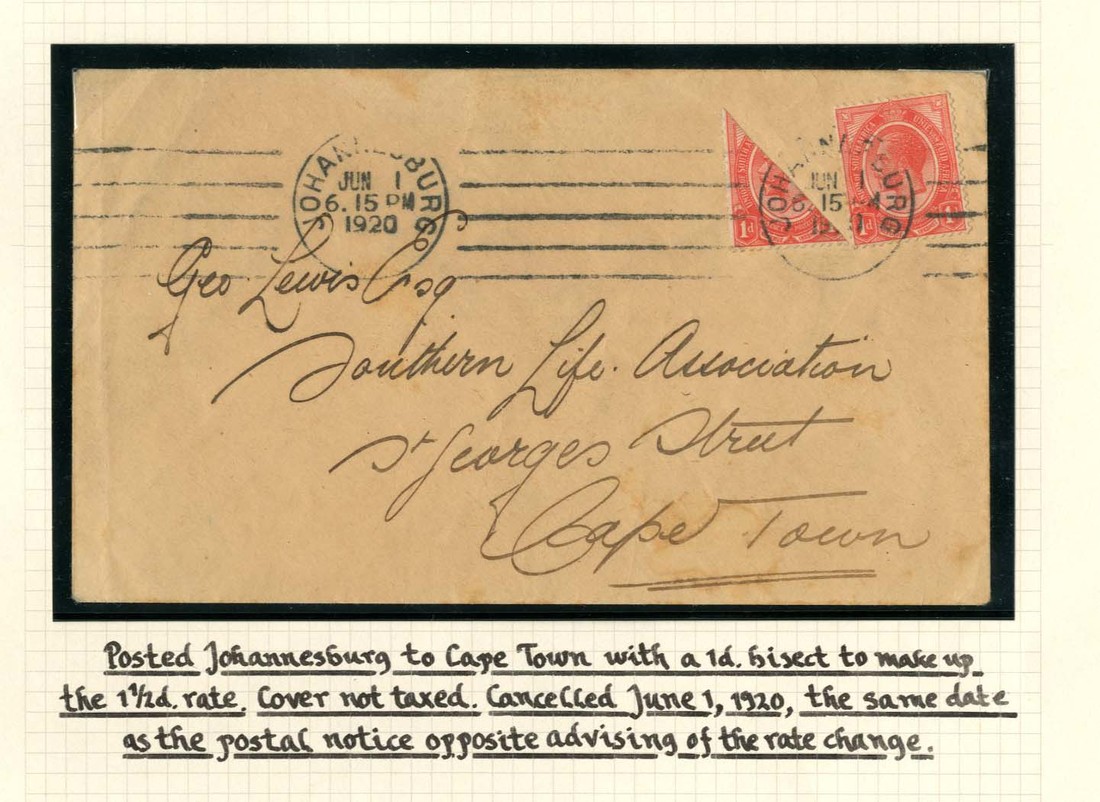 JOHANNESBURG
JUN 1
6.15 PM
1920
JOHANNESBURG
JUN 1
6.15 PM
1d
1d
Geo Lewis Esq
Southern Life. Association
St Georges Street
Cape Town
Posted Johannesburg to Cape Town with a 1d. bisect to make up
the 1½d. rate. Cover not taxed. Cancelled June 1, 1920, the same date
as the postal notice opposite advising of the rate change.